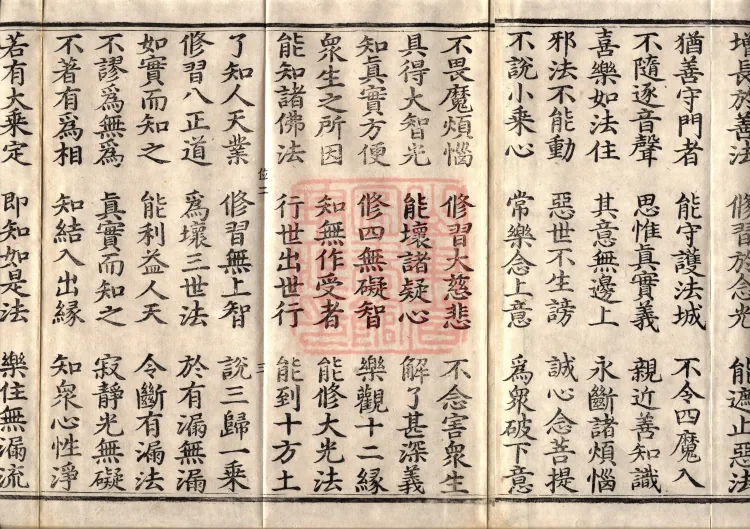 增長於善法 修習於念光 能遮止惡法
猶善守門者 能守護法城 不令四魔入
不隨逐音聲 思惟真實義 親近善知識
喜樂如法住 其意無邊上 永斷諸煩惱
邪法不能動 惡世不生謗 誠心念菩提
不說小乘心 常樂念上意 為衆破下意
不畏魔煩惱 修習大慈悲 不念害衆生
具得大智光 能壞諸疑心 解了甚深義
知真實方便 修四無礙智 樂觀十二緣
衆生之所因 知無作受者 能修大光法
能知諸佛法 行世出世行 能到十方土
位二 三
了知人天業 修習無上智 說三歸一乘
修習八正道 為壞三世法 於有漏無漏
如實而知之 能利益人天 令斷有漏法
不謬為無為 真實而知之 寂靜光無礙
不著有為相 知結入出緣 知衆心性淨
若有大乘定 即知如是法 樂住無漏流